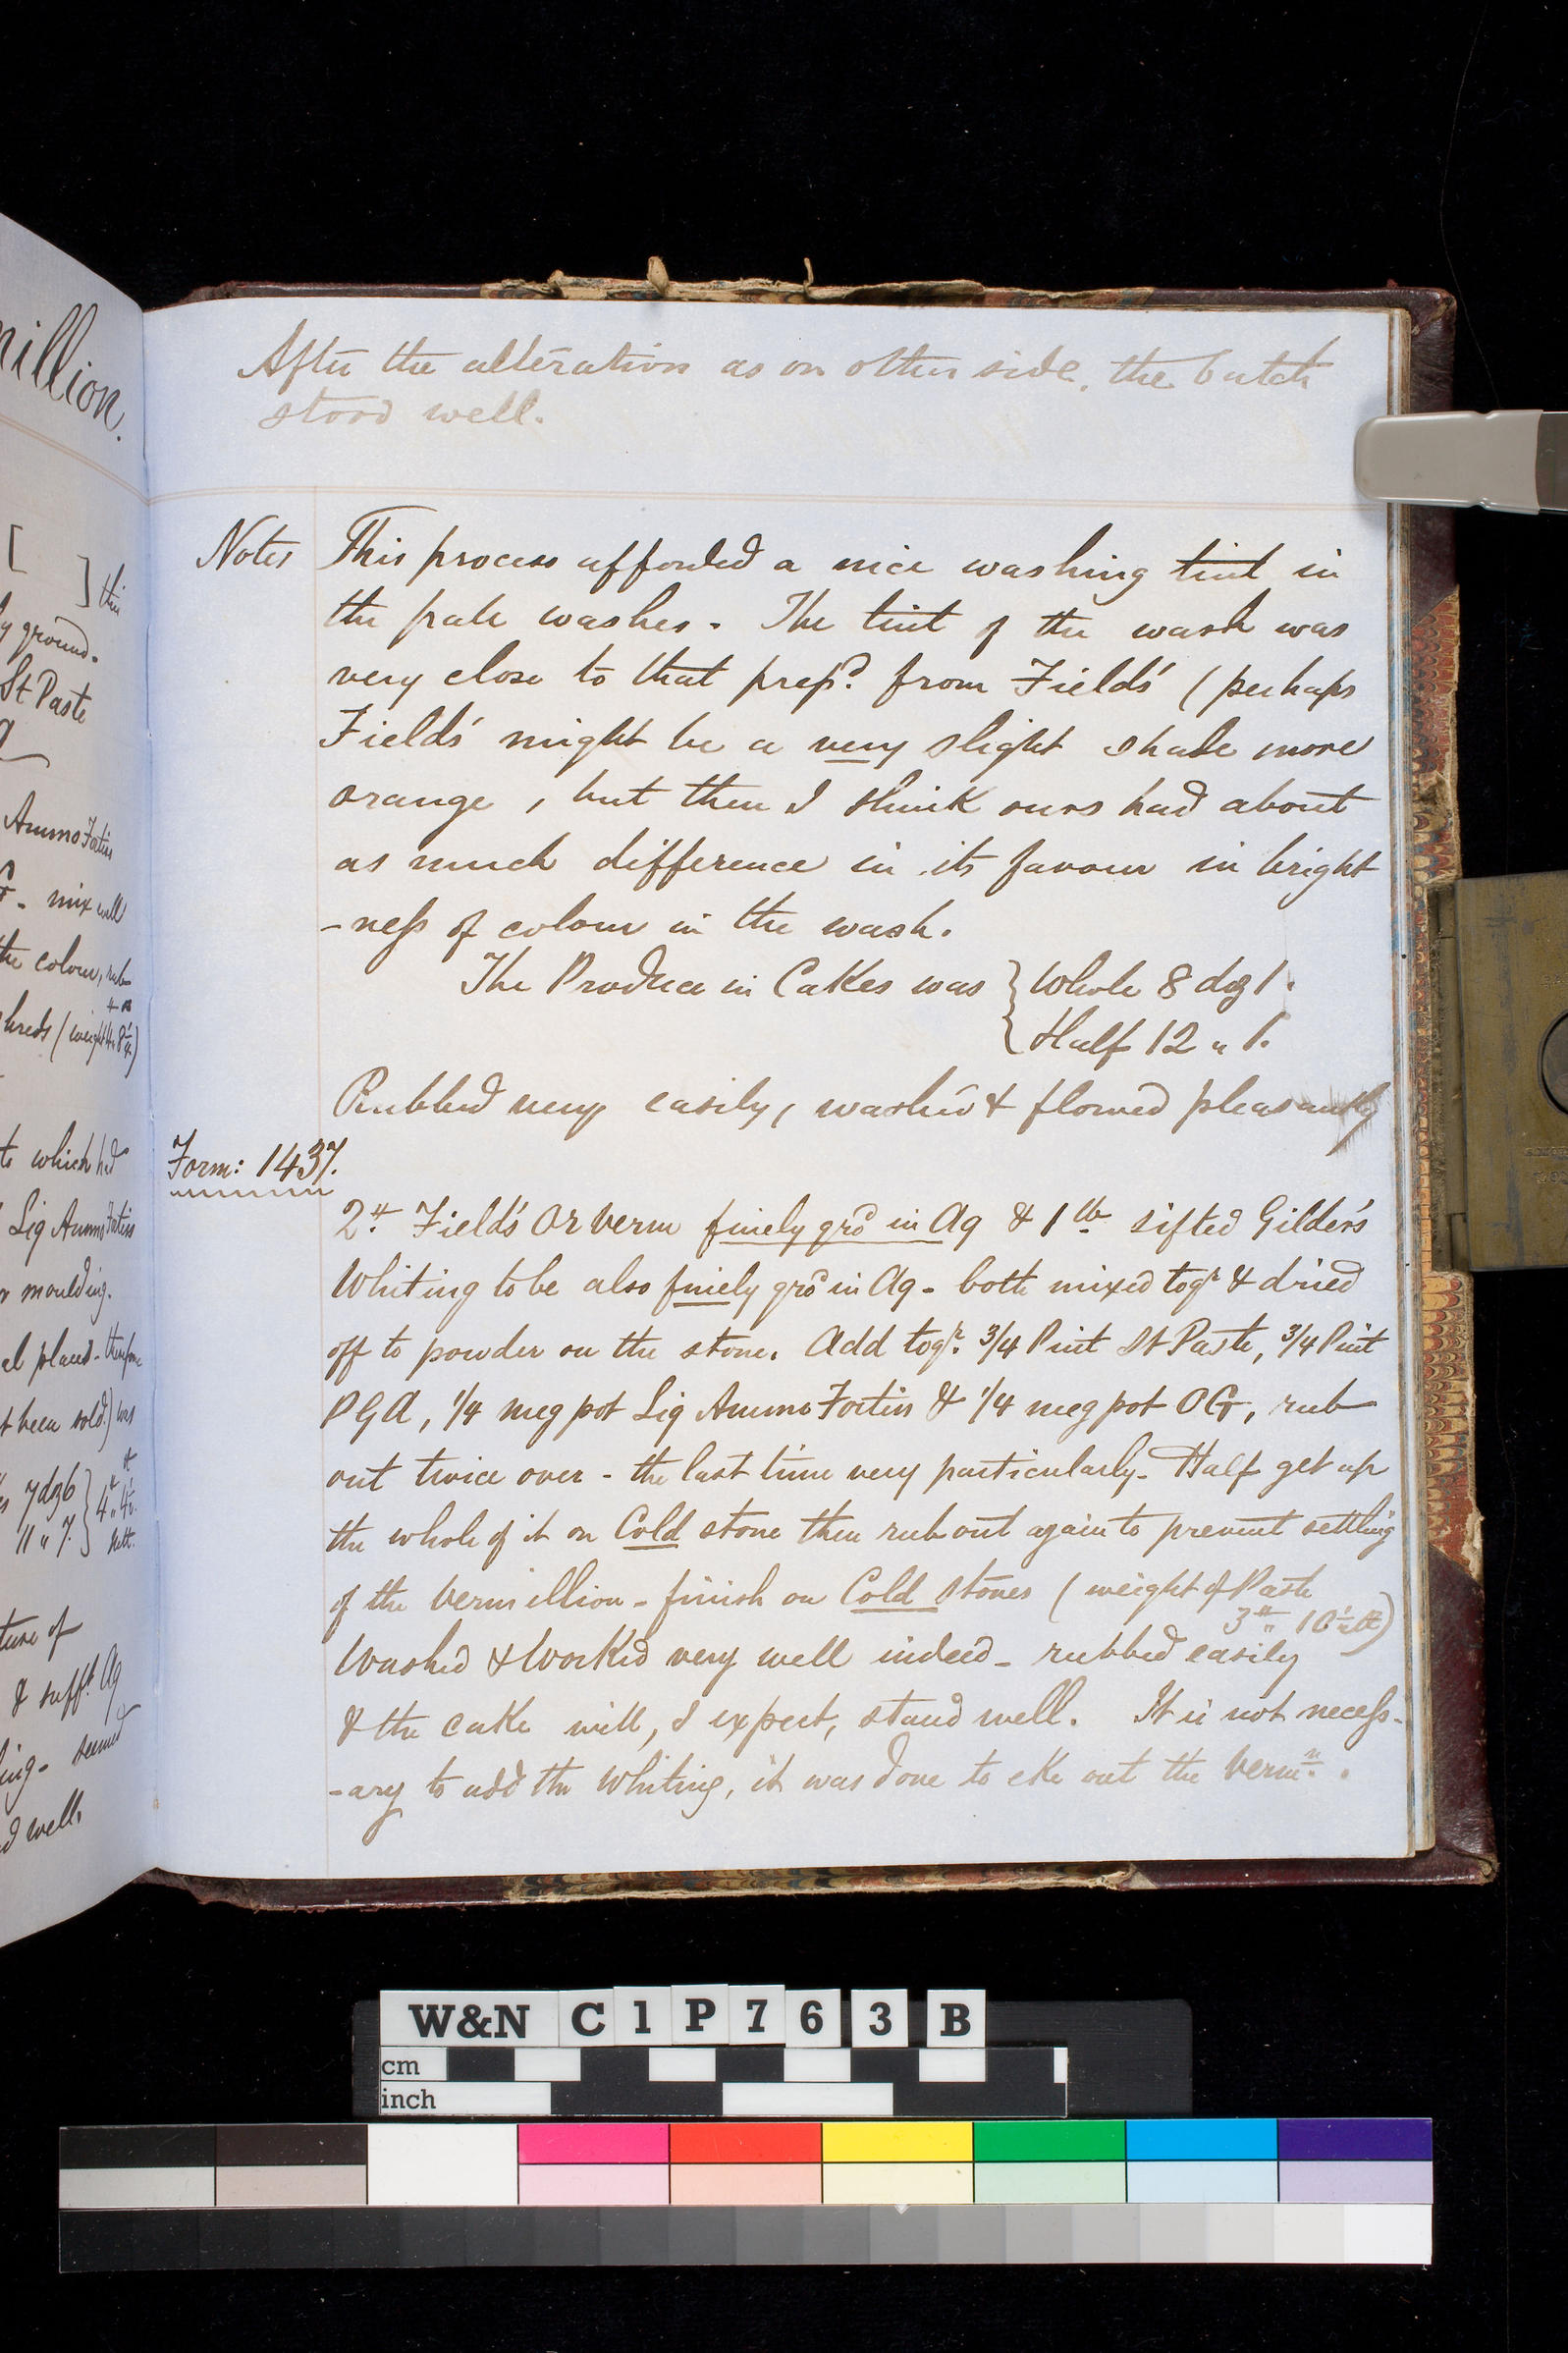 million.
[ ] this
ly ground.
St Paste
Ammo Fortiss
mix well
the colour, rub
shreds (weight
to which had
Liq Ammo Fortiss
r moulding.
al placed - therefore
t been sold.) was
7 dog 6
11 " 7.
nett.
ture of
& sufft. Aq
ing - seemed
d well.
After the alteration as on other side, the batch
stood well.
Notes This process afforded a nice washing tint in
the pale washes. The tint of the wash was
very close to that prepd. from Field's (perhaps
Field's might be a very slight shade more
orange, but then I think ours had about
as much difference in its favour in bright
-ness of colour in the wash.
The Produce in Cakes was } Whole 8 dog 1.
Half 12 " 1.
Rubbed very easily, washed & flowed pleasantly
Form: 1437.
2 lb. Field's Or Verm finely grd in Aq & 1 lb sifted Gilder's
Whiting to be also finely grd in Aq - both mixed togr & dried
off to powder on the stone. Add togr. 3/4 Pint St Paste, 3/4 Pint
P G A, 1/4 meg pot Liq Ammo Fortiss & 1/4 meg pot OG, rub
out twice over - the last time very particularly. Half get up
the whole of it on Cold stone then rub out again to prevent settling
of the Vermillion - finish on Cold stones (weight of Paste
3 lb " 10 1/2 lb)
Washed & Worked very well indeed - rubbed easily
& the cake will, I expect, stand well. It is not necess-
-ary to add the Whiting, it was done to eke out the Vermn.
W&N C1P763B
cm
inch